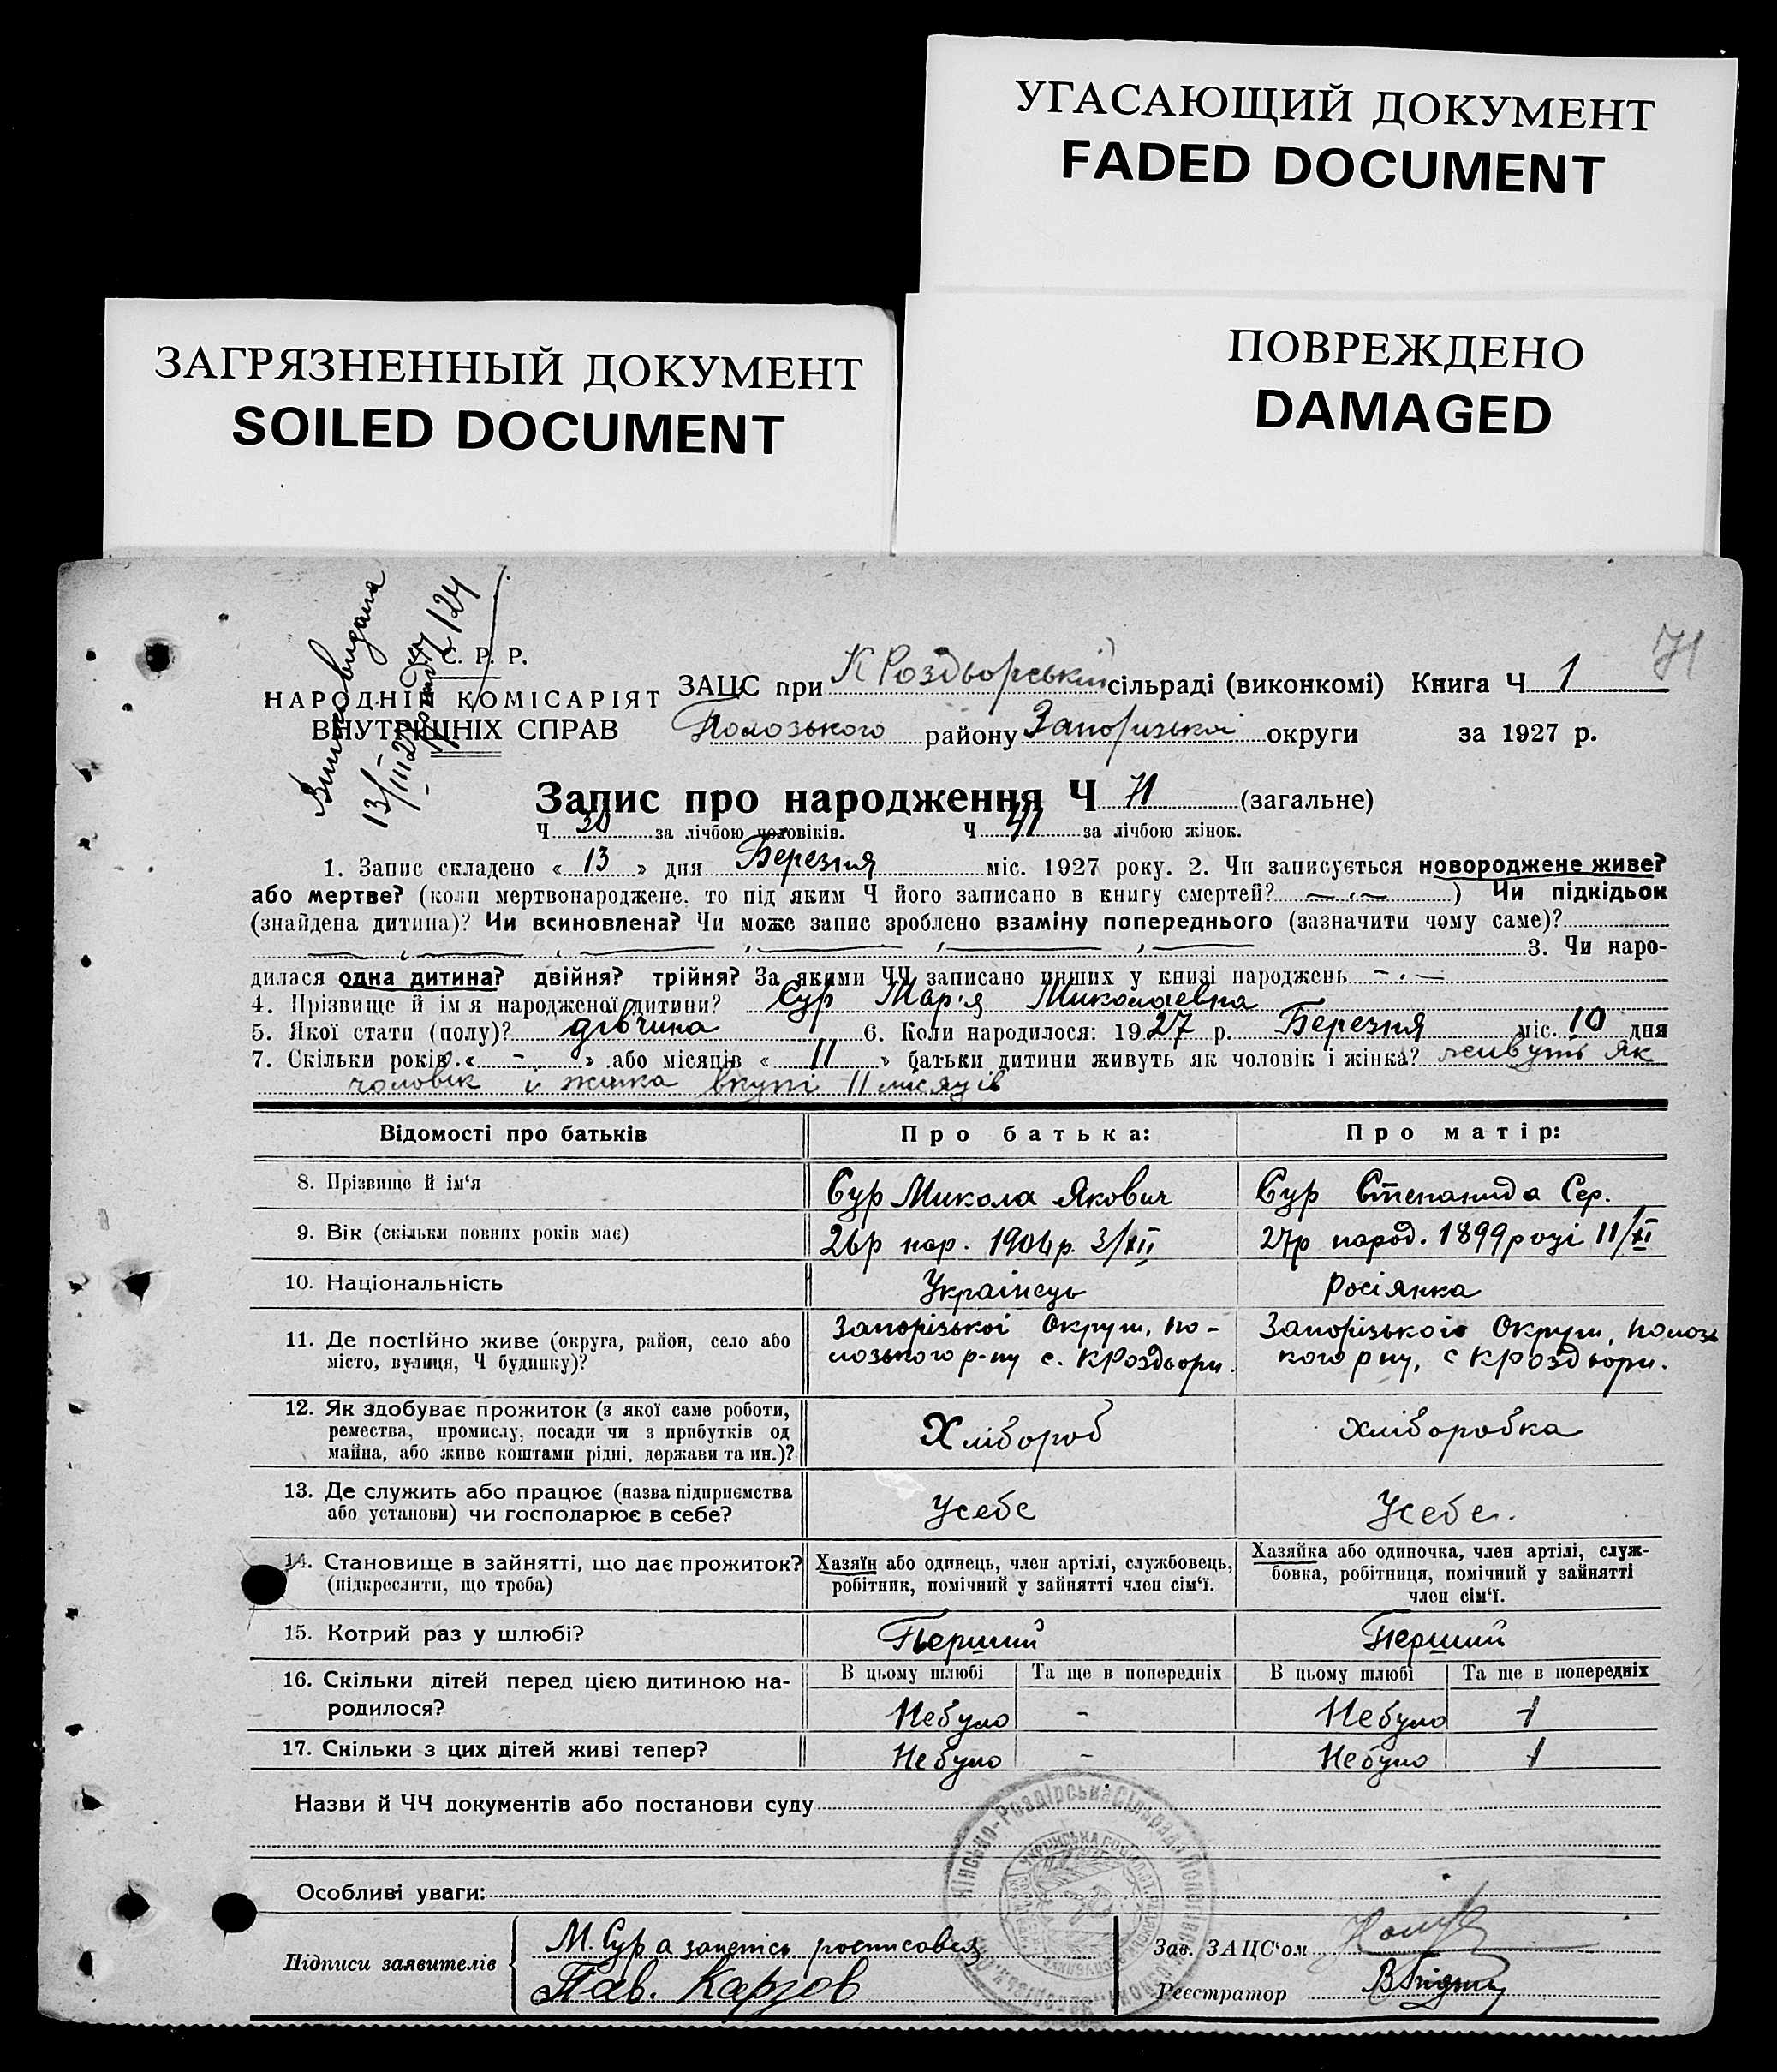 УГАСАЮЩИЙ ДОКУМЕНТ
FADED DOCUMENT
ЗАГРЯЗНЕННЫЙ ДОКУМЕНТ
SOILED DOCUMENT
ПОВРЕЖДЕНО
DAMAGED
71
видана
13/III 27
С. Р. Р.
НАРОДНІЙ КОМІСАРІЯТ
ВНУТРІШНІХ СПРАВ
ЗАЦС при К Роздворській сільраді (виконкомі) Книга Ч 1
Полозького району Запоризької округи за 1927 р.
Запис про народження Ч 71 (загальне)
Ч 30 за лічбою чоловіків. Ч 41 за лічбою жінок.
1. Запис складено « 13 » дня Березня міс. 1927 року. 2. Чи записується новороджене живе?
або мертве? (коли мертвонароджене, то під яким Ч його записано в книгу смертей? ) Чи підкідьок
(знайдена дитина)? Чи всиновлена? Чи може запис зроблено взаміну попереднього (зазначити чому саме)?
3. Чи наро-
дилася одна дитина? двійня? трійня? За якими ЧЧ записано инших у книзі народжень - . -
4. Прізвище й ім я народженої дитини? Сур Мар'я Миколаевна
5. Якої стати (полу)? дівчина 6. Коли народилося: 1927 р. Березня міс. 10 дня
7. Скільки років « - » або місяців « 11 » батьки дитини живуть як чоловік і жінка? живуть як
чоловік й жінка вкупі 11 місяців
Відомості про батьків Про батька: Про матір:
8. Прізвище й ім'я Сур Микола Якович Сур Степанида Сер.
9. Вік (скільки повних років має) 26р нар. 1904р. 3/XII 27р народ. 1899 році 11/XI
10. Національність Українець Росіянка
11. Де постійно живе (округа, район, село або Запорізької Округи, По- Запорізького Округи, Полозь
місто, вулиця, Ч будинку)? лозького р-ну с. КРоздвори. кого р ну, с КРоздвори.
12. Як здобуває прожиток (з якої саме роботи,
ремества, промислу, посади чи з прибутків од Хлібороб хліборобка
майна, або живе коштами рідні, держави та ин.)?
13. Де служить або працює (назва підприємства
або установи) чи господарює в себе? Усебе Усебе.
14. Становище в зайнятті, що дає прожиток? Хазяїн або одинець, член артілі, службовець, Хазяйка або одиночка, член артілі, служ-
(підкреслити, що треба) робітник, помічний у зайнятті член сім'ї. бовка, робітниця, помічний у зайнятті
член сім'ї.
15. Котрий раз у шлюбі? Перший Перший
16. Скільки дітей перед цією дитиною на- В цьому шлюбі Та ще в попередніх В цьому шлюбі Та ще в попередніх
родилося? Небуло - Небуло 1
17. Скільки з цих дітей живі тепер? Небуло - Небуло 1
Назви й ЧЧ документів або постанови суду
Особливі уваги:
Підписи заявителів М. Сур а запись росписовся Зав. ЗАЦС'ом
Пав. Карзов Реєстратор